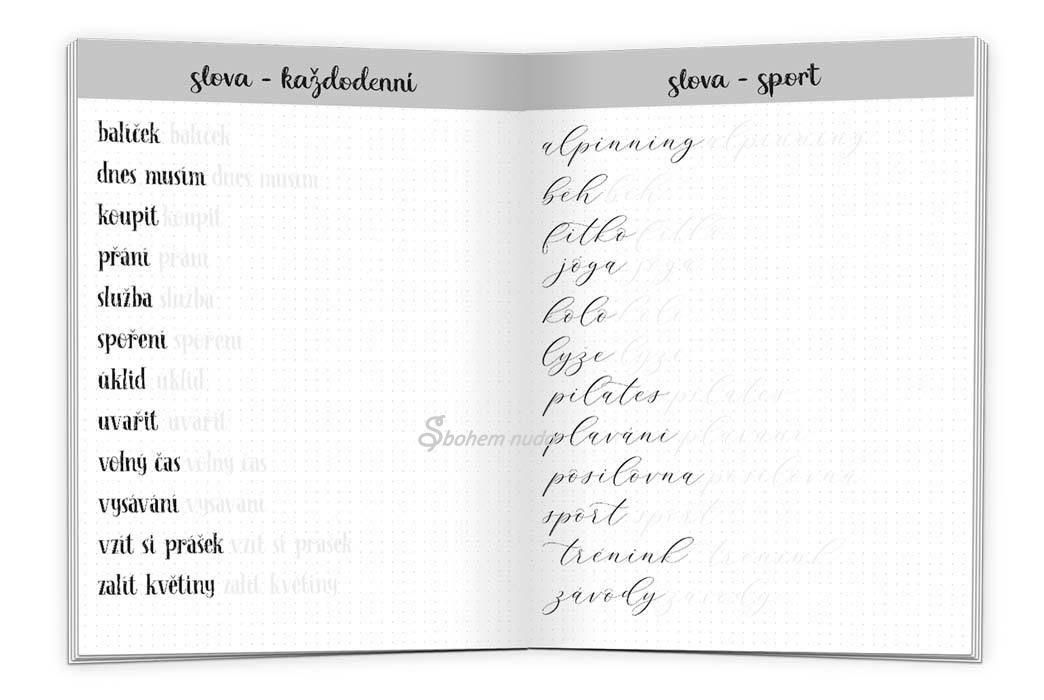 slova - každodenní
balíček balíček
dnes musím dnes musím
koupit koupit
přání přání
služba služba
spoření spoření
úklid úklid
uvařit uvařit
volný čas volný čas
vysávání vysávání
vzít si prášek vzít si prášek
zalít květiny zalít květiny
slova - sport
alpinning alpinning
běh běh
fitko fitko
jóga jóga
kolo kolo
lyže lyže
pilates pilates
plavání plavání
posilovna posilovna
sport sport
trénink trénink
závody závody
Sbohem nudo